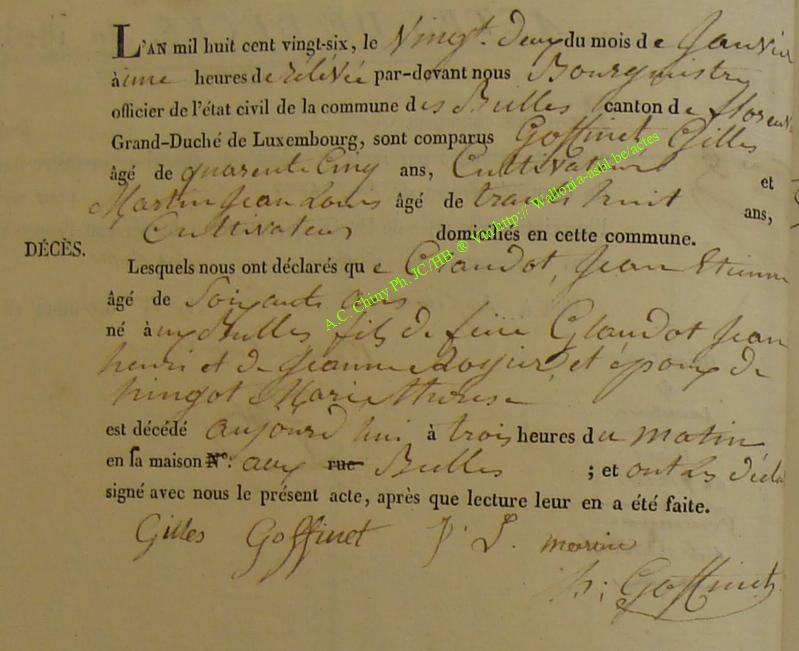 L'AN mil huit cent vingt-six, le Vingt deux du mois de Janvier
à une heures de rélévée par-devant nous Bourgmestre
officier de l'état civil de la commune des Bulles canton de florenv
Grand-Duché de Luxembourg, sont comparus Goffinet Gilles
âgé de quarente Cinq ans, Cultivateur et
Martin Jean Louis âgé de trante huit ans,
Cultivateur domiciliés en cette commune.
DÉCÈS.
Lesquels nous ont déclarés que Claudot, Jean Etienne
âgé de Soixante ans
né aux Bulles fils de feue Glaudot Jean
henri et de Jeanne Rogier, et époux de
hingot Marie therese
est décédé aujourd hui à trois heures du matin
en sa maison N°: aux rue Bulles ; et ont les décla
signé avec nous le présent acte, après que lecture leur en a été faite.
Gilles Goffinet J. L. martin
h: Goffinet
A.C. Chiny Ph. JC/HB ® Via http:// Wallonia-asbl.be/actes